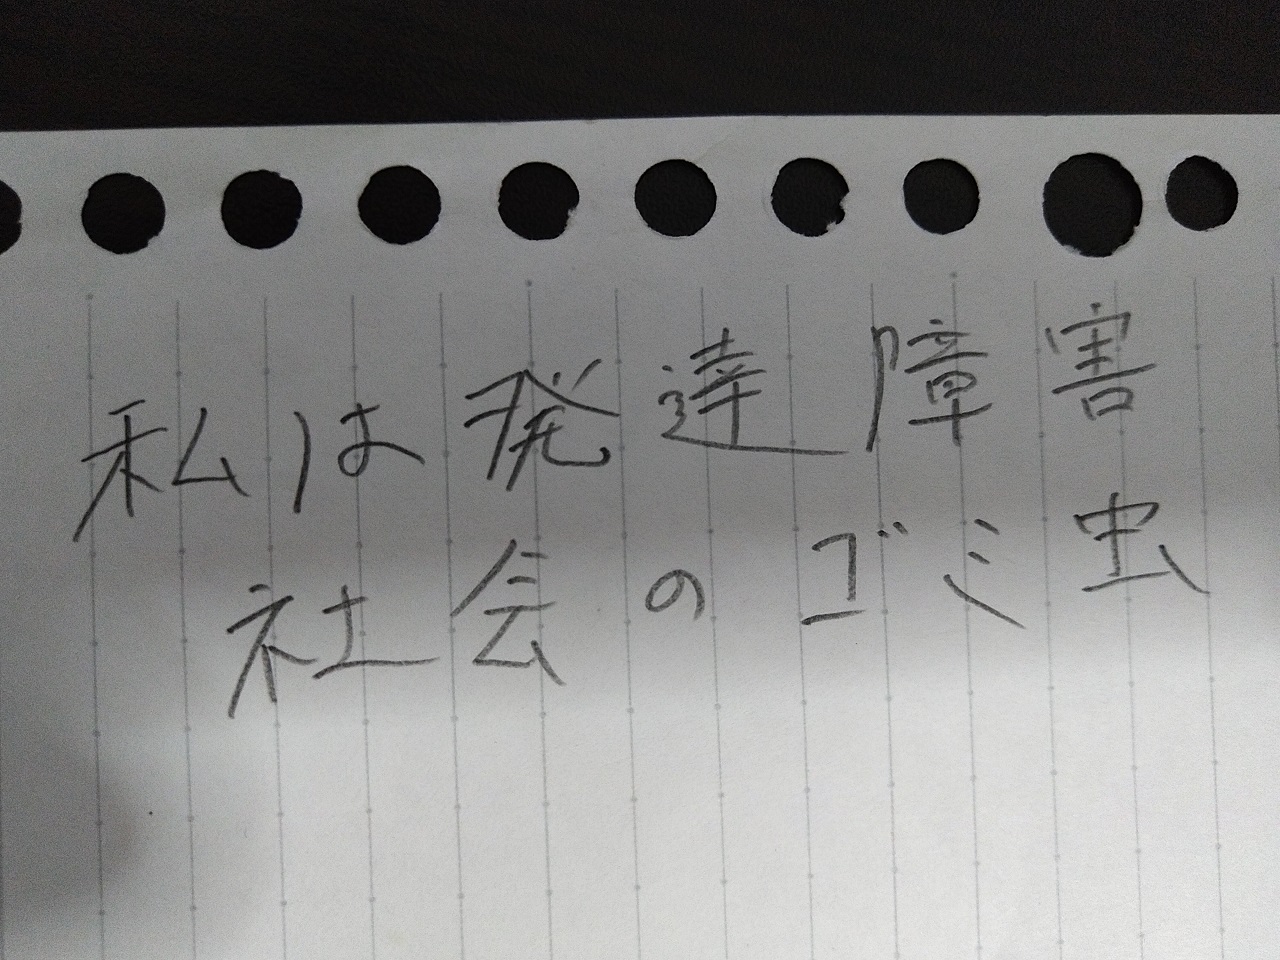 私は発達障害
社会のゴミ虫